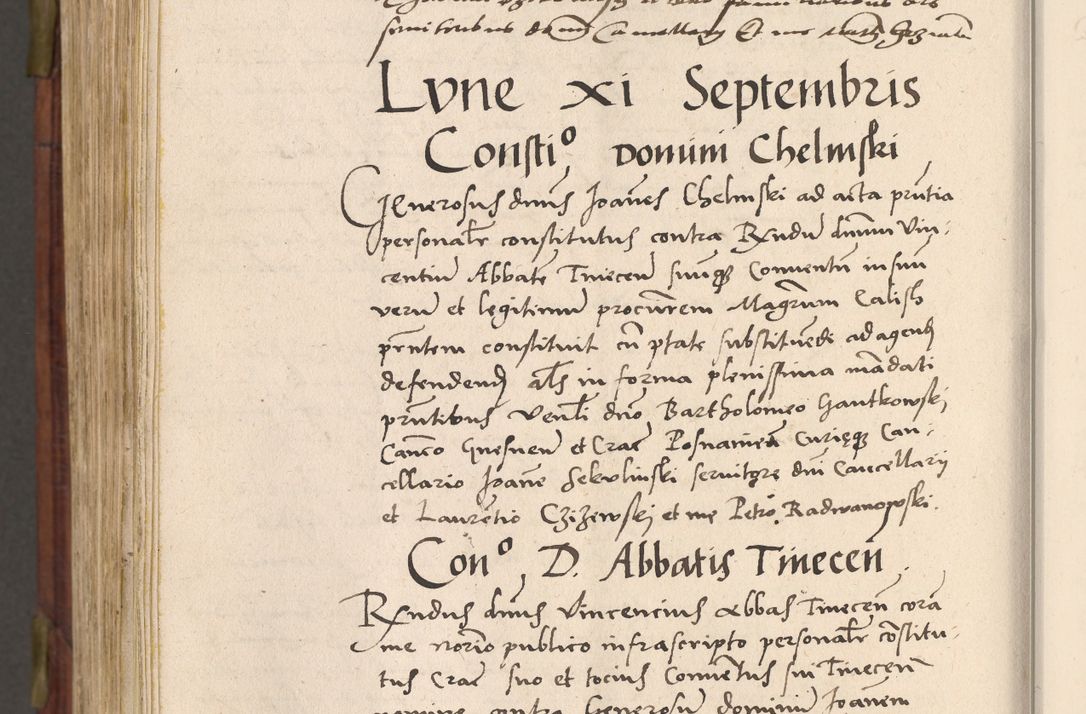 servitoribus
Lvne xi Septembris
Consti⁰, Domini Chelmski
Generosus dnus Joañes Chelmski ad acta pñtia
personalr constitutus contra Rxndū dnum Vin-
centiū Abbatē Tinecen̄ suumq̨ Conventū in suū
verū et legitimū procurem Magrum Calish
pñtem constituit cū ptate substituēdi ad agend
defendend als in forma plenissima mādati
pñtibus Venli dno Bartholomeo Gantkowskj
Canco Gnesnen̄ et Crac̄ Posnanien̄ curięq̨ Can-
cellario Joanne Sekvlinski servitorę dni Cancellarij
et Laurētio Cziżewskj et me Petro Radwanowski.
Con⁰, D. Abbatis Tinecen̄.
Rxndus dnus Vincencius Abbas Tinecen̄ corā
me norio publico infrascripto personalr cōstitu-
tus Crac̄ suo et tocius Conventus sui Tinecen̄
nomine contra Generosū dominū Joanem